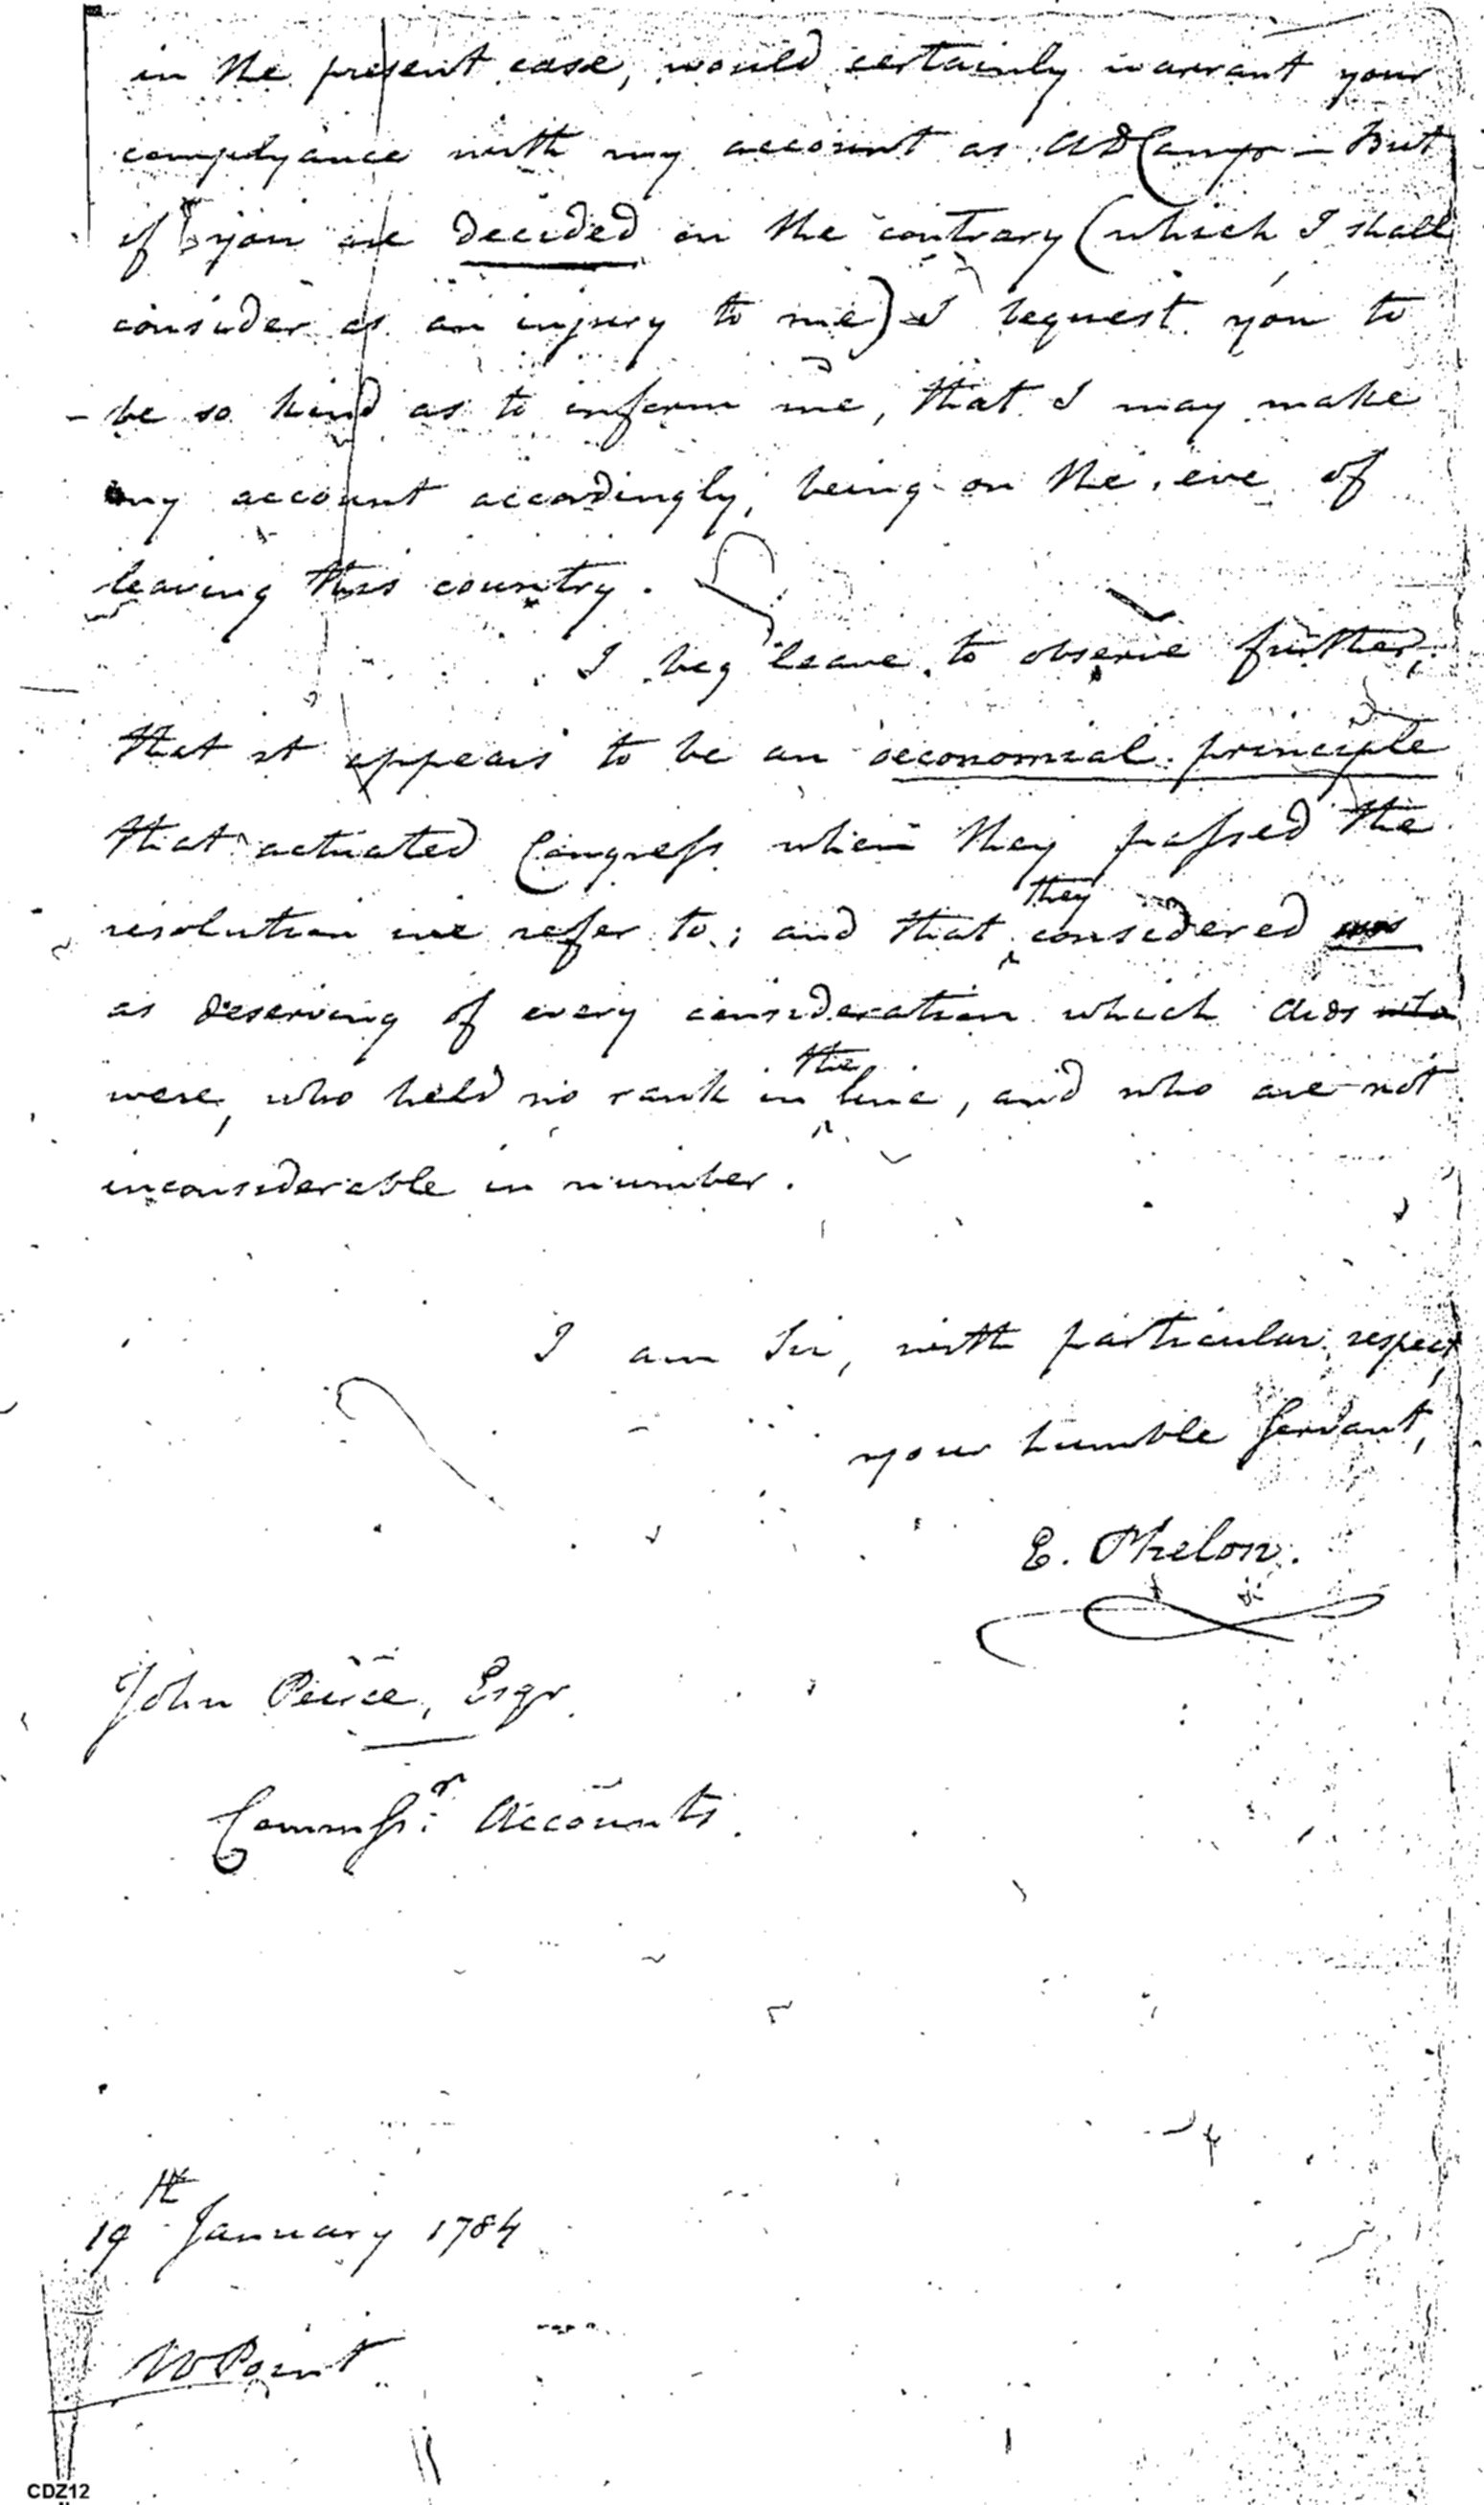 in the present case, would certainly warrant your
complyance with my account as ADCamp – But
if you are decided on the contrary (which I shall
consider as an injury to me) I request you to
be so kind as to inform me, that I may make
my account accordingly, being on the eve of
leaving this country.
I beg leave to observe further,
that it appears to be an oeconomical principle
that actuated Congress when they passed the
they
resolution we refer to; and that considered us
as deserving of every consideration which Aids who
the
were, who held no rank in line, and who are not
inconsiderable in number.
I am Sir, with particular respect,
your humble Servant,
E. Phelon.
John Peirce, Esqr.
Commssr. Accounts.
19th January 1784
W Point
CDZ12